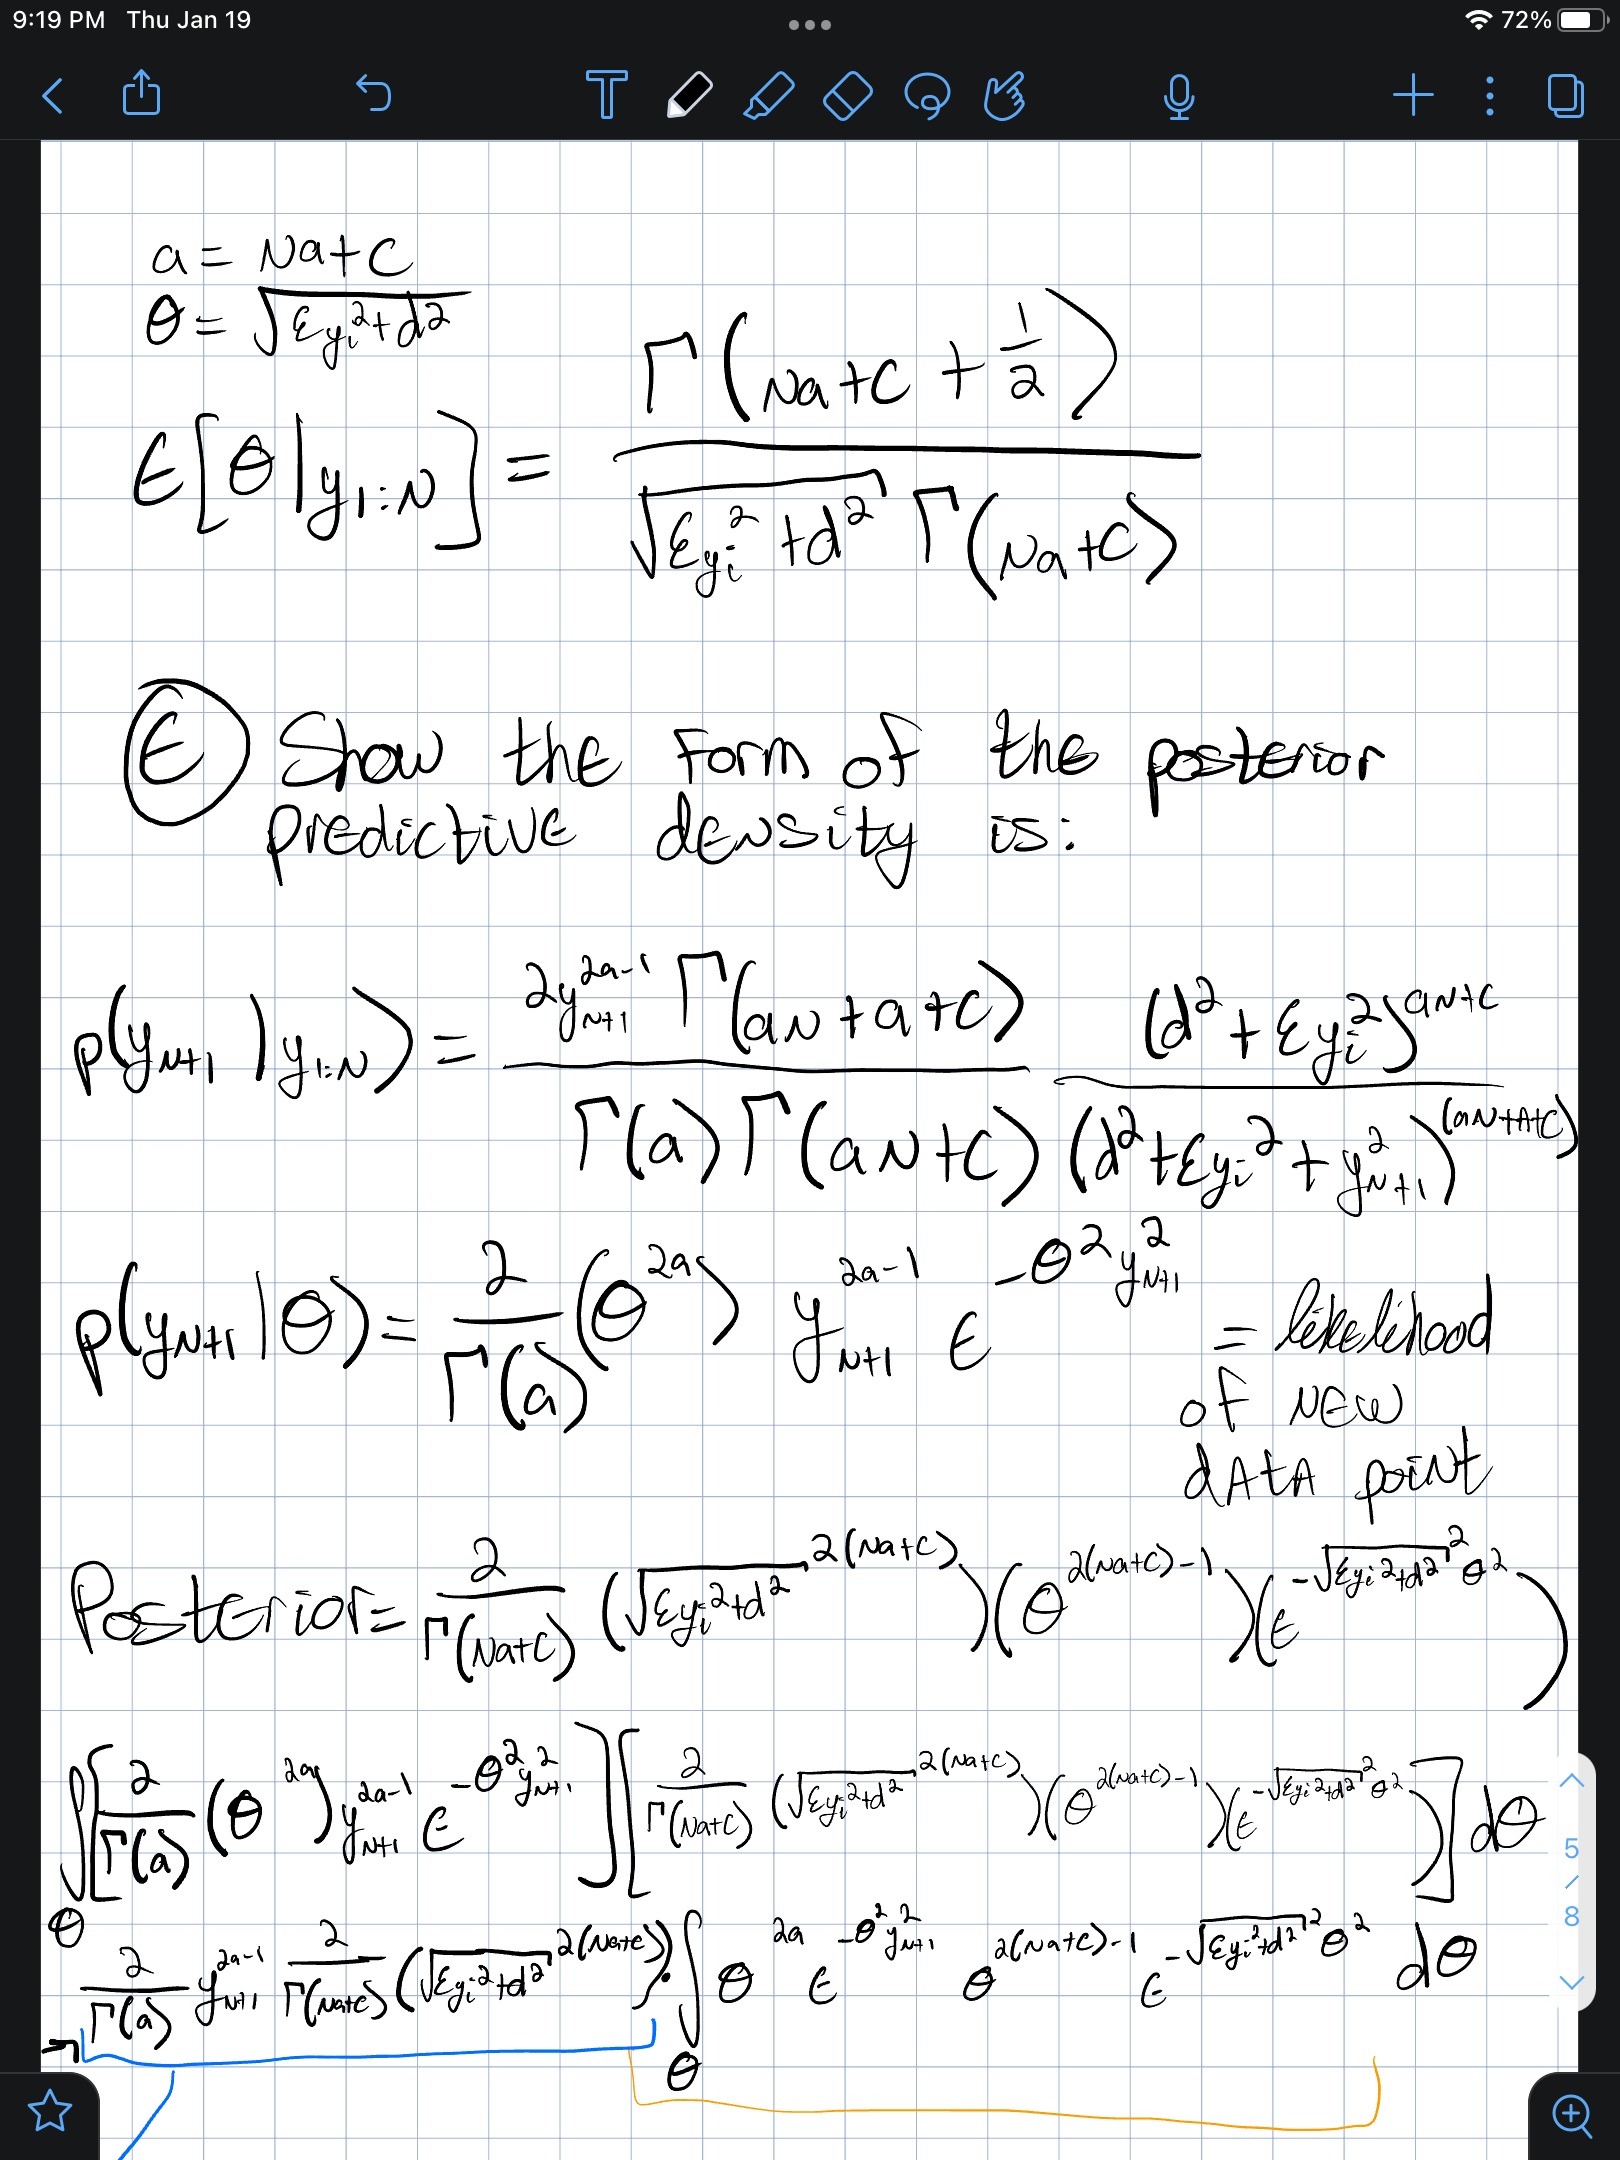 9:19 PM Thu Jan 19 72%
a = Na+C
θ = √(Σy_i²+d²)
E[θ|y_{1:N}] = Γ(Na+C + 1/2) / (√(Σy_i²+d²) Γ(Na+C))
(E) Show the form of the posterior
predictive density is:
p(y_{N+1} | y_{1:N}) = (2y_{N+1}^{2a-1} Γ(aN+a+C)) / (Γ(a) Γ(aN+C)) (d²+Σy_i²)^{aN+C} / (d²+Σy_i²+y_{N+1}²)^{(aN+A+C)}
p(y_{N+1}|θ) = 2/Γ(a) (θ^{2a}) y_{N+1}^{2a-1} e^{-θ²y_{N+1}²} = likelihood
of NEW
dAtA point
Posterior = 2/Γ(Na+C) (√(Σy_i²+d²)^{2(Na+C)})(θ^{2(Na+C)-1})(e^{-√(Σy_i²+d²)² θ²})
∫_θ [2/Γ(a) (θ^{2a}) y_{N+1}^{2a-1} e^{-θ²y_{N+1}²}][2/Γ(Na+C) (√(Σy_i²+d²)^{2(Na+C)})(θ^{2(Na+C)-1})(e^{-√(Σy_i²+d²)² θ²})] dθ
2/Γ(a) y_{N+1}^{2a-1} 2/Γ(Na+C) (√(Σy_i²+d²)^{2(Na+C)}) · ∫_θ θ^{2a} e^{-θ²y_{N+1}²} θ^{2(Na+C)-1} e^{-√(Σy_i²+d²)² θ²} dθ
5
/
8